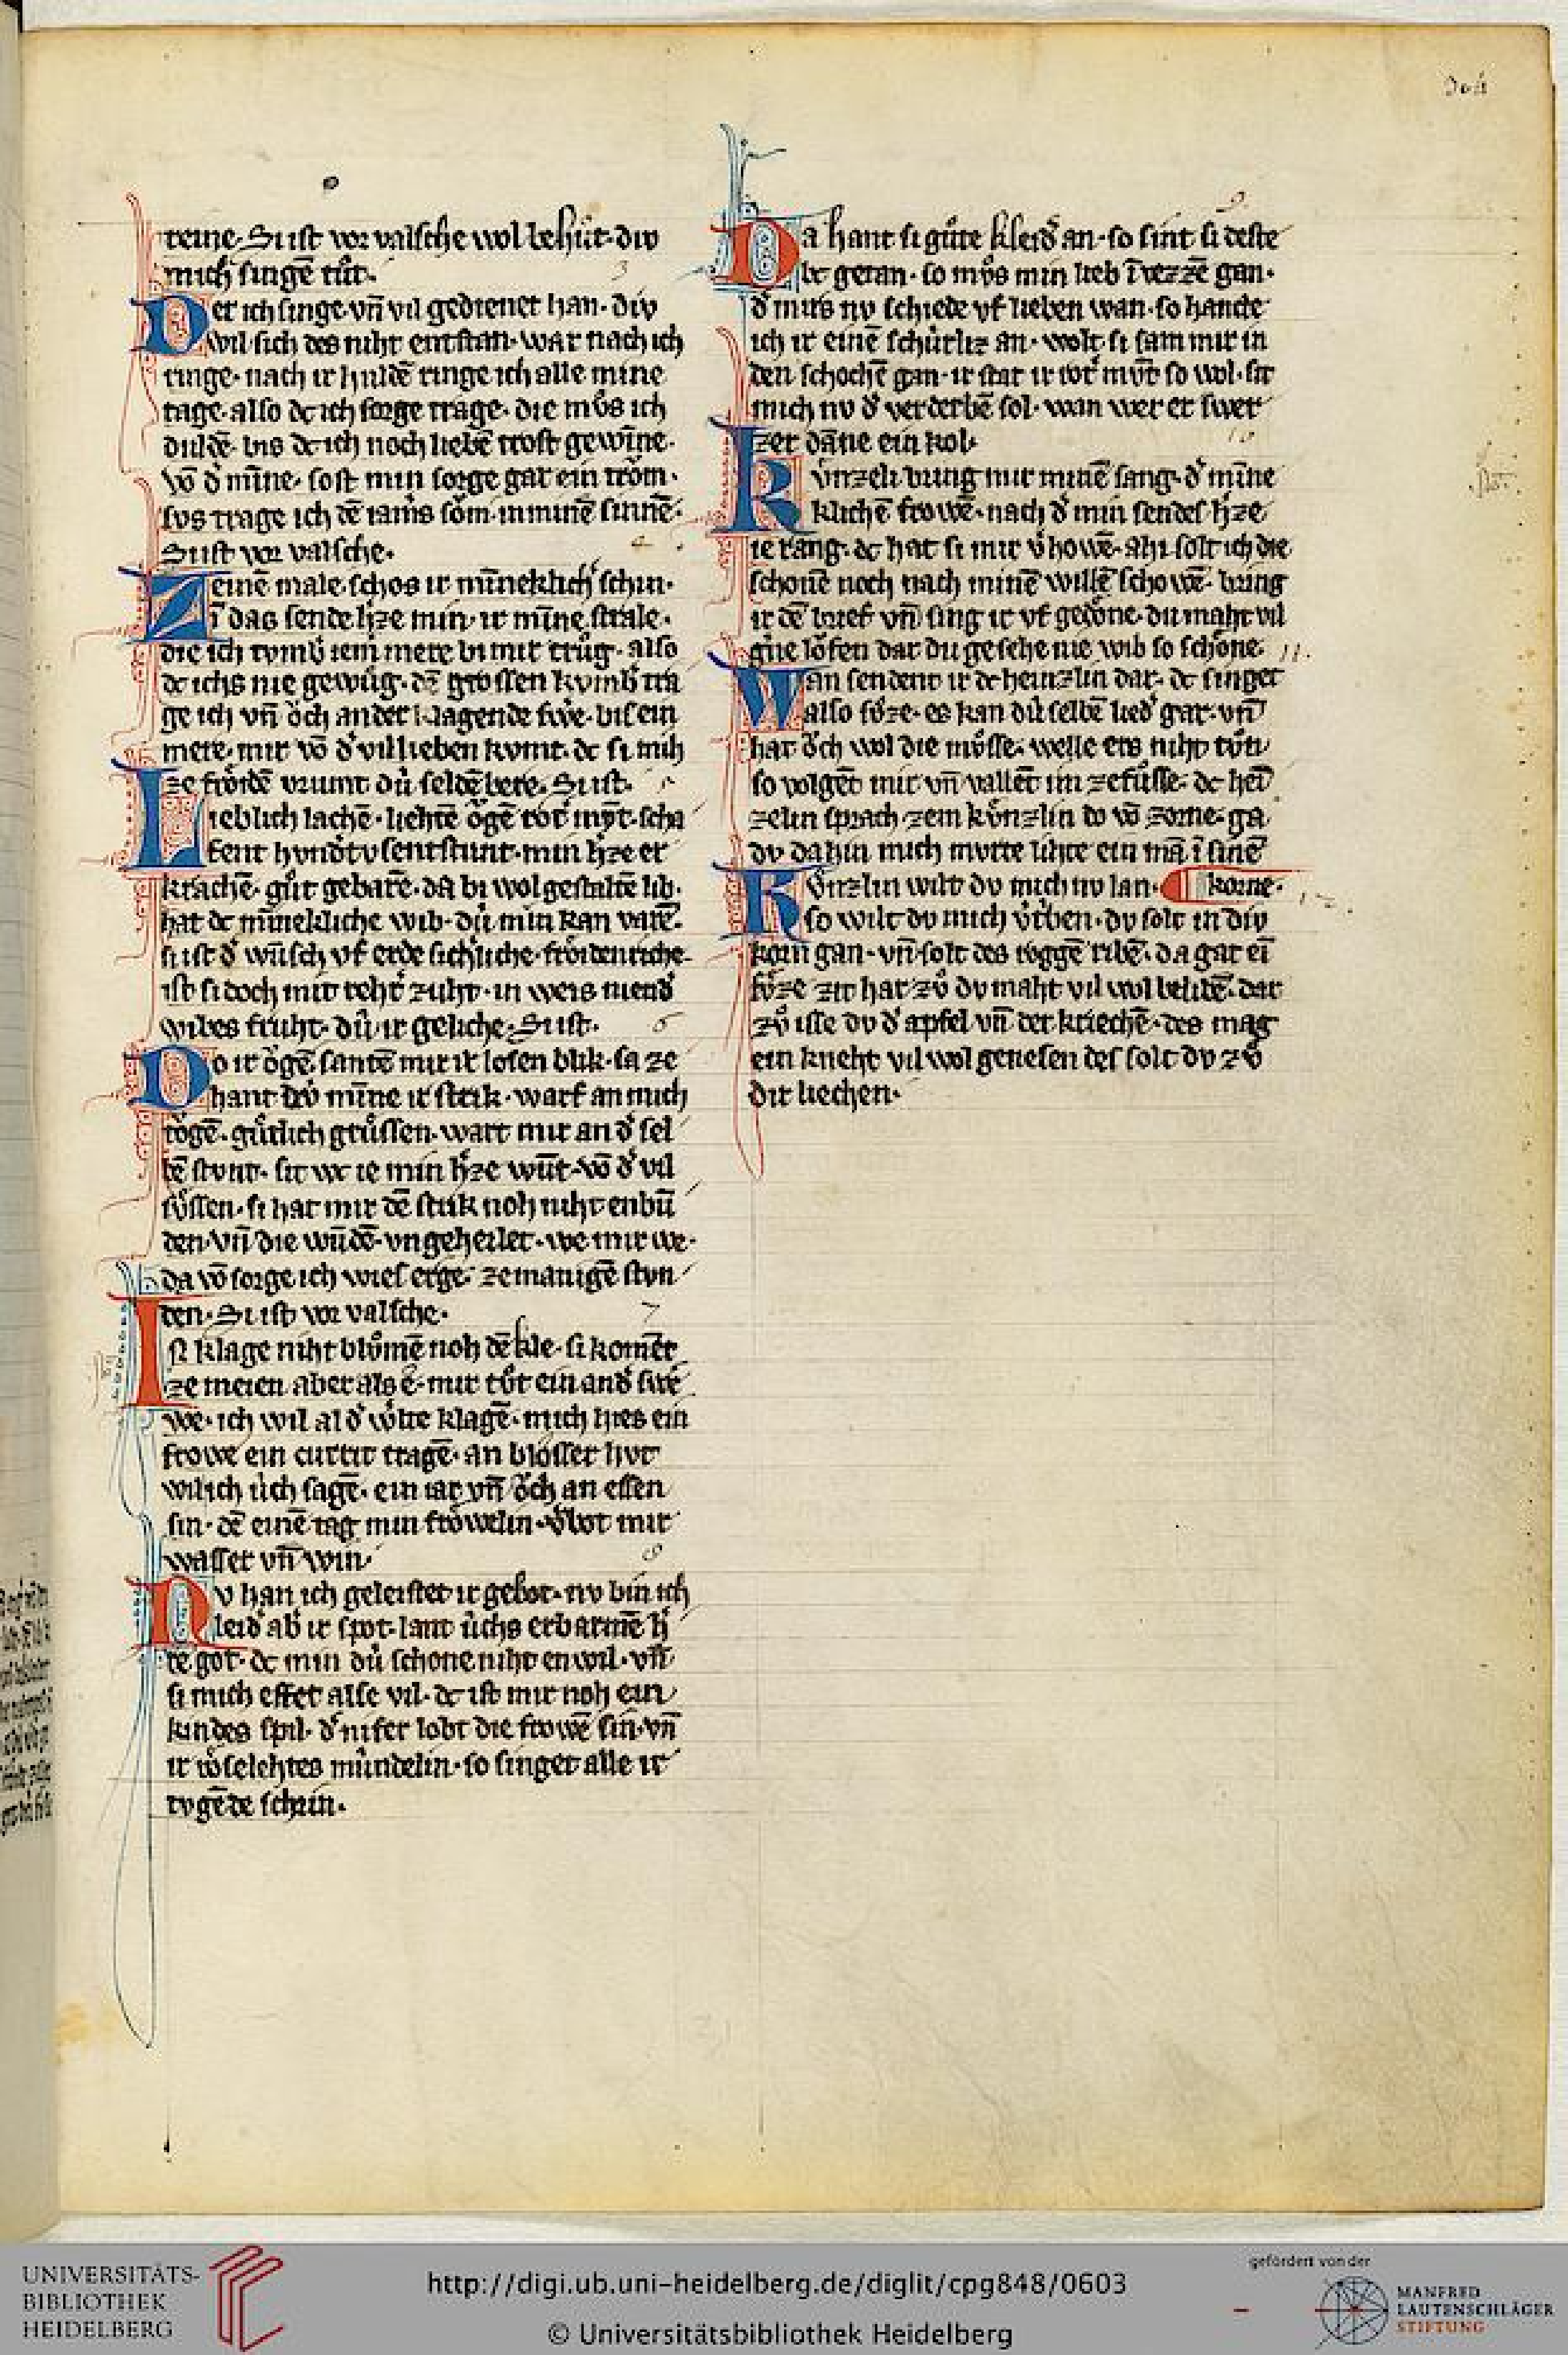 304
reine· Si ist vor valsche wol behůt· div
mich singē tůt· 3
Der ich singe· vn̄ vil gedienet han· div
wil sich des niht entstan· war nach ich
ringe· nach ir huldē ringe ich alle mine
tage· also dc ich sorge trage· die můs ich
duldē· bis dc ich noch liebē trost gewīne·
vō d͛ mīne· sost min sorge gar ein trȏm·
svs trage ich dē iam͛s sȏm· in minē sinnē·
Si ist vor valsche· 4
Zeinē male· schos ir mīneklich͛ schin·
ī das sende h͛ze min· ir mīne strale·
die ich tvmb͛ iem͛ mere bi mir trůg· also
dc ichs nie gewůg· dē grossen kvmb͛ tra
ge ich vn̄ ȏch an der klagende swe͛· bis ein
mere· mir vō d͛ vil lieben kvmt· dc si mih
ze frȏidē vrumt dů seldēbere· Si ist· 5
Lieblich lachē· liehtē ȏgē rot͛ mv̄t· scha
fent hvnd͛tvsentstunt· min h͛ze er
krachē· gůt gebarē· da bi wol gestaltē lib·
hat dc mīnekliche wib· dů min kan varē·
si ist d͛ wūsch vf erde sich͛liche· frȏidenriche·
ist si doch mit reht͛ zuht· in weis niend͛
wibes fruht· dů ir geliche· Si ist· 6
Do ir ȏgē santē mir ir losen blik· sa ze
hant dů mīne ir strik· warf an mich
tȏgē· gůtlich grůssen· wart mir an d͛ sel
bē stvnt· sit wc ie min h͛ze wūt· vō d͛ vil
sůssen· si hat mir dē strik noh niht enbū
den· vn̄ die wūdē· vngeheilet· we mir we·
da vō sorge ich wies erge· ze manigē stvn
den· Si ist vor valsche· 7
In klage niht blůmē noh dē kle· si komēt
ze meien aber als e· mir tůt ein and͛ swe͛
we· ich wil al d͛ w͛lte klagē· mich hies ein
frowe ein curtit tragē· an blosser hvt
wil ich ůch sagē· ein iar vn̄ ȏch an essen
sin· dē einē tag min frȏwelin· v͛bot mir
wasser vn̄ win· 8
Nv han ich geleistet ir gebot· nv bin ich
leid͛ ab͛ ir spot· lant ůchs erbarmē h͛
re got· dc min dů schone niht enwil· vn̄
si mich effet alse vil· dc ist mir noh ein
kindes spil· d͛ nifer lobt die frowē sin· vn̄
ir rȏselehtes můndelin· so singet alle ir
tvgēde schin·
9
Da hant si gůte kleid͛ an· so sint si deste
bc getan· so můs min lieb ī vezzē gan·
d͛ mirs nv schiede vf lieben wan· so hancte
ich ir einē schůrliz an· wolt si sam mir in
den schochē gan· ir stat ir rot͛ mv̄t so wol· sit
mich nv d͛ verderbē sol· wan wer er swer
zer dāne ein kol· 10
Kůnzeli bring mir minē sang· d͛ mīne
klichē frowē· nach d͛ min sendes h͛ze
ie rang· dc hat si mir v͛howē· ahi solt ich die
schonē noch nach minē willē schowē· bring
ir dē brief vn̄ sing ir vf gedȏne· du maht vil
g͛ne lȏfen dar du gesehe nie wib so schȏne· 11.
Wan sendent ir dc heinzlin dar· dc singet
also sůze· es kan dů selbē lied͛ gar· vn̄
hat ȏch wol die můsse· welle ers niht tůn
so volgēt mir vn̄ vallēt im ze fůsse· dc hei
zelin sprach zem kůnzlin do vō zorne· ga
dv dahin mich mvrte lihte ein mā ī sinē
korne·
Kůnzlin wilt dv mich nv lan· 12.
so wilt dv mich v͛triben· dv solt in div
korn gan· vn̄ solt des roggē ribē· da gat ei
sůze zit har zů dv maht vil wol belibē· dar
zů isse dv d͛ apfel vn̄ der kriechē· des mag
ein kneht vil wol genesen des solt dv zů
dir liechen·
UNIVERSITÄTS-
BIBLIOTHEK
HEIDELBERG
http://digi.ub.uni-heidelberg.de/diglit/cpg848/0603
© Universitätsbibliothek Heidelberg
gefördert von der
MANFRED
LAUTENSCHLÄGER
STIFTUNG